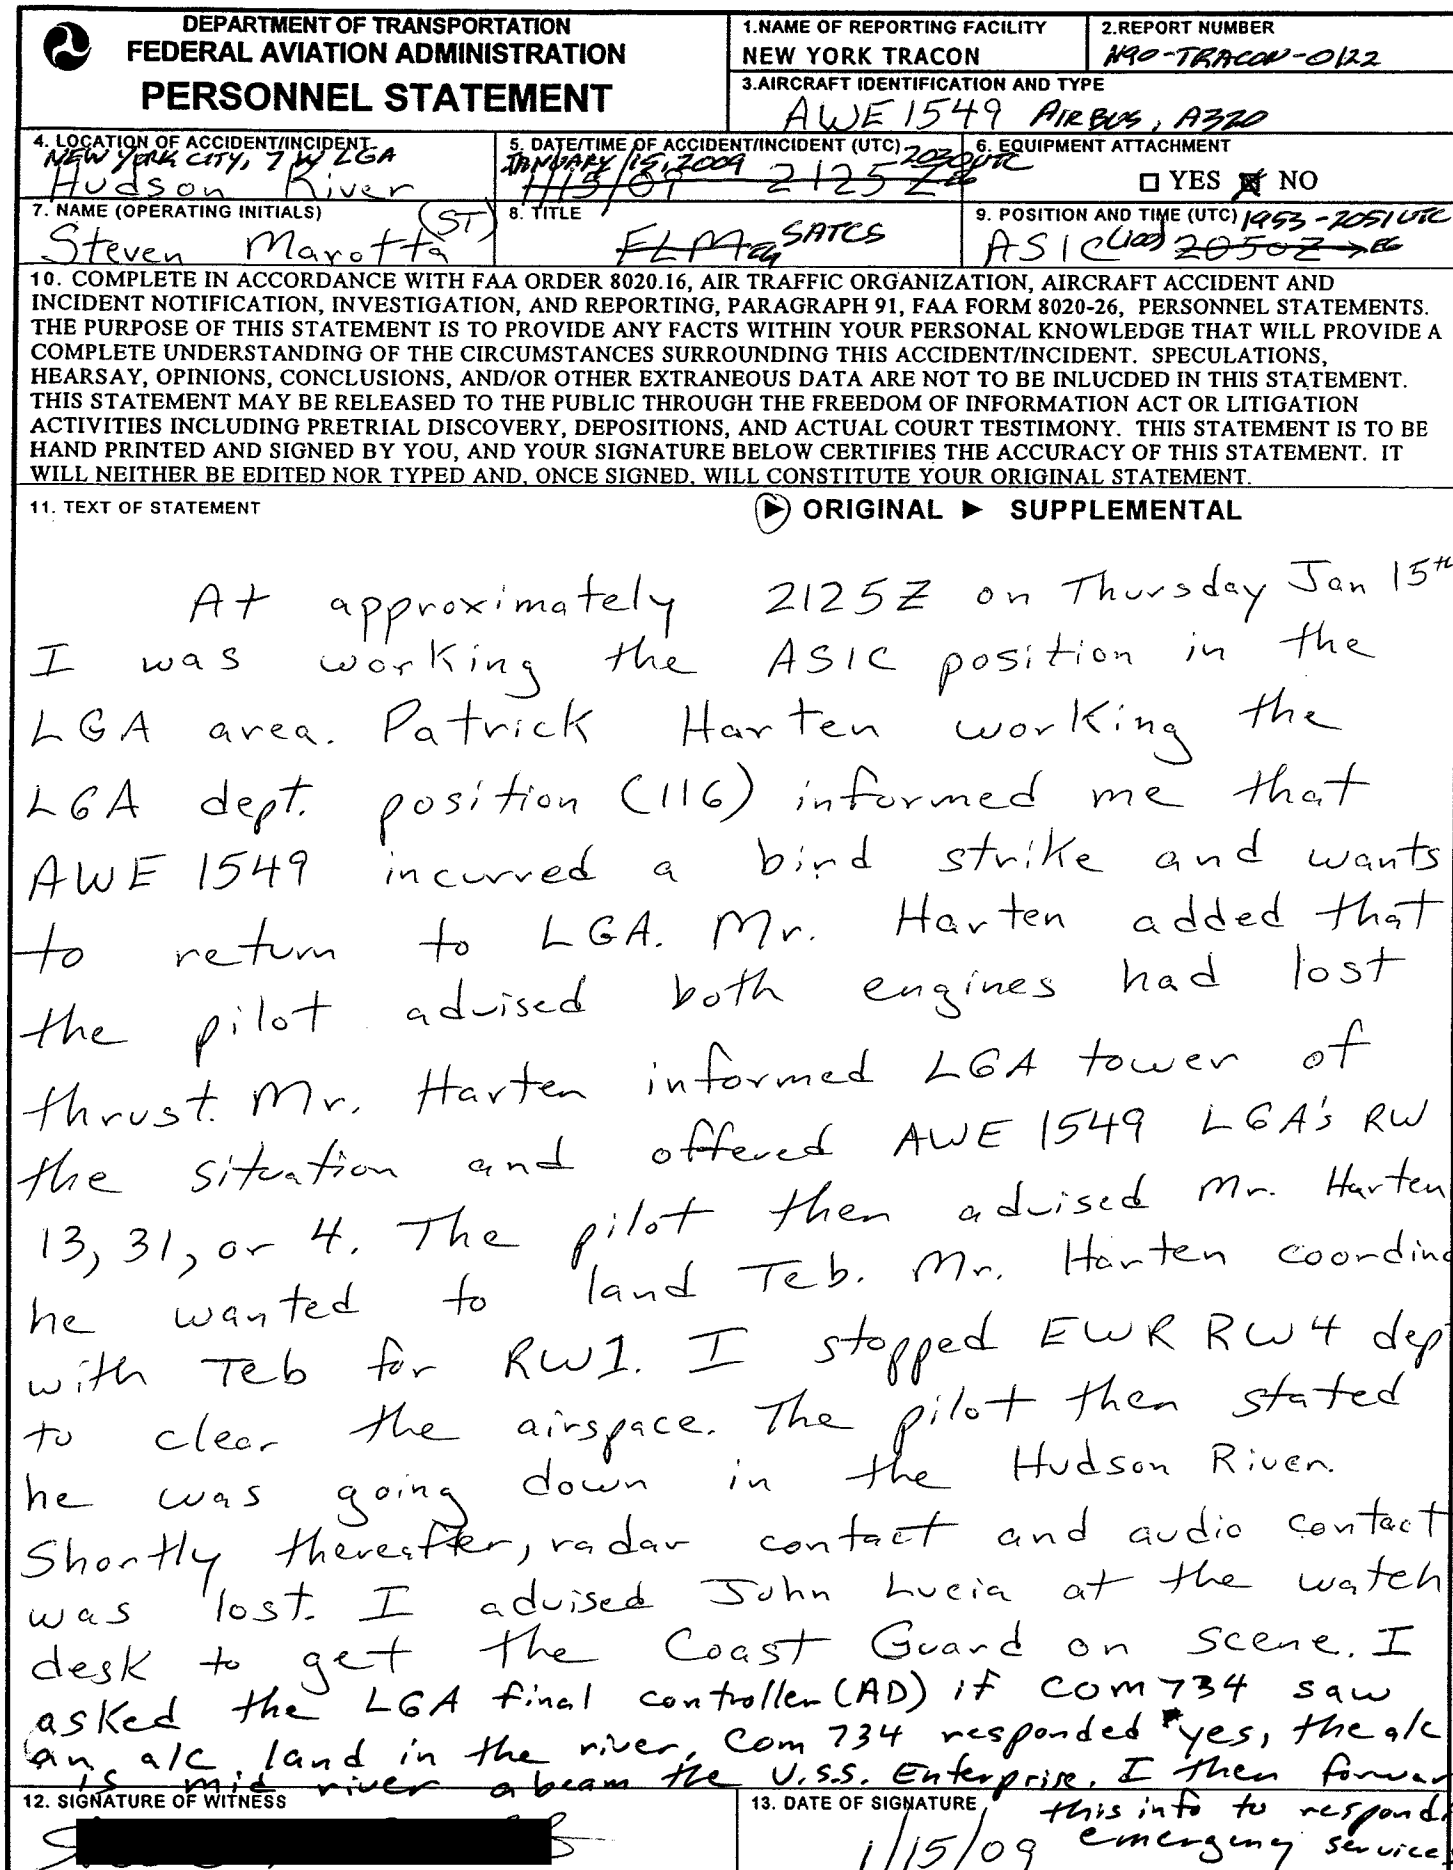 DEPARTMENT OF TRANSPORTATION
FEDERAL AVIATION ADMINISTRATION
PERSONNEL STATEMENT
1.NAME OF REPORTING FACILITY
NEW YORK TRACON
2.REPORT NUMBER
N90-TRACON-0122
3.AIRCRAFT IDENTIFICATION AND TYPE
AWE 1549 AIRBUS, A320
4. LOCATION OF ACCIDENT/INCIDENT
NEW YORK CITY, 7 W LGA
Hudson River
5. DATE/TIME OF ACCIDENT/INCIDENT (UTC)
JANUARY 15, 2009 2030 UTC
1/15/09 2125Z EG
6. EQUIPMENT ATTACHMENT
YES NO
7. NAME (OPERATING INITIALS)
Steven Marotta (ST)
8. TITLE
FLM EG SATCS
9. POSITION AND TIME (UTC) 1953-2051 UTC
ASIC (100) 2050Z → EG
10. COMPLETE IN ACCORDANCE WITH FAA ORDER 8020.16, AIR TRAFFIC ORGANIZATION, AIRCRAFT ACCIDENT AND
INCIDENT NOTIFICATION, INVESTIGATION, AND REPORTING, PARAGRAPH 91, FAA FORM 8020-26, PERSONNEL STATEMENTS.
THE PURPOSE OF THIS STATEMENT IS TO PROVIDE ANY FACTS WITHIN YOUR PERSONAL KNOWLEDGE THAT WILL PROVIDE A
COMPLETE UNDERSTANDING OF THE CIRCUMSTANCES SURROUNDING THIS ACCIDENT/INCIDENT. SPECULATIONS,
HEARSAY, OPINIONS, CONCLUSIONS, AND/OR OTHER EXTRANEOUS DATA ARE NOT TO BE INLUCDED IN THIS STATEMENT.
THIS STATEMENT MAY BE RELEASED TO THE PUBLIC THROUGH THE FREEDOM OF INFORMATION ACT OR LITIGATION
ACTIVITIES INCLUDING PRETRIAL DISCOVERY, DEPOSITIONS, AND ACTUAL COURT TESTIMONY. THIS STATEMENT IS TO BE
HAND PRINTED AND SIGNED BY YOU, AND YOUR SIGNATURE BELOW CERTIFIES THE ACCURACY OF THIS STATEMENT. IT
WILL NEITHER BE EDITED NOR TYPED AND, ONCE SIGNED, WILL CONSTITUTE YOUR ORIGINAL STATEMENT.
11. TEXT OF STATEMENT
▶ ORIGINAL ▶ SUPPLEMENTAL
At approximately 2125Z on Thursday Jan 15th
I was working the ASIC position in the
LGA area. Patrick Harten working the
LGA dept. position (116) informed me that
AWE 1549 incurred a bird strike and wants
to return to LGA. Mr. Harten added that
the pilot advised both engines had lost
thrust. Mr. Harten informed LGA tower of
the situation and offered AWE 1549 LGA's RW
13, 31, or 4. The pilot then advised Mr. Harten
he wanted to land Teb. Mr. Harten coordina
with Teb for RW1. I stopped EWR RW4 dept
to clear the airspace. The pilot then stated
he was going down in the Hudson River.
Shortly thereafter, radar contact and audio contact
was lost. I advised John Lucia at the watch
desk to get the Coast Guard on scene. I
asked the LGA final controller (AD) if COM 734 saw
an a/c land in the river. Com 734 responded "yes, the a/c
is mid river abeam the U.S.S. Enterprise. I then forwar
this info to respondi
emergency services
12. SIGNATURE OF WITNESS
13. DATE OF SIGNATURE
1/15/09